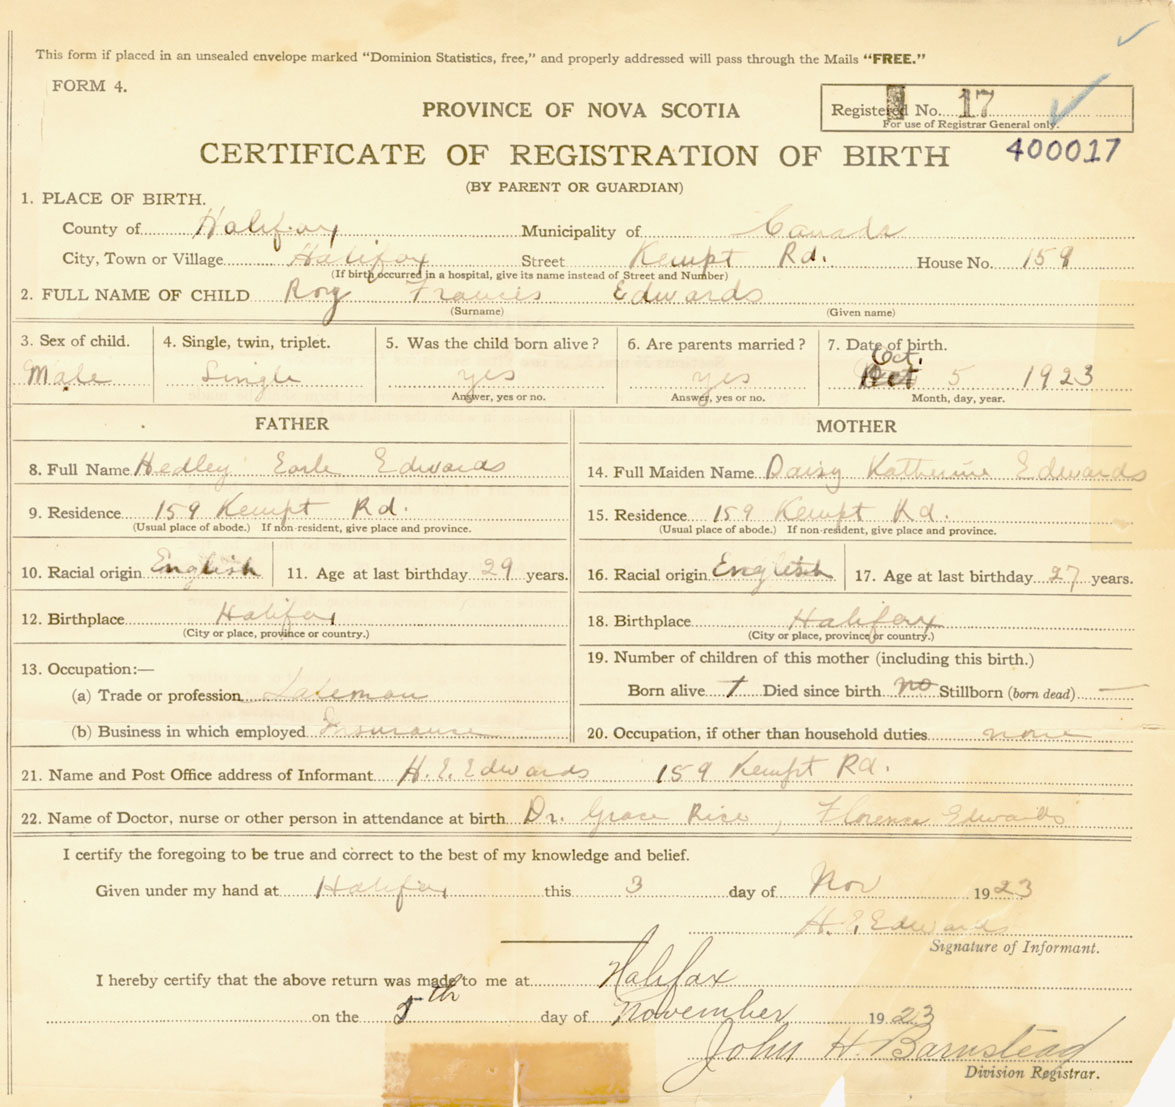 This form if placed in an unsealed envelope marked “Dominion Statistics, free,” and properly addressed will pass through the Mails “FREE.”
FORM 4.
PROVINCE OF NOVA SCOTIA
Registered No. 17
For use of Registrar General only.
CERTIFICATE OF REGISTRATION OF BIRTH
400017
(BY PARENT OR GUARDIAN)
1. PLACE OF BIRTH.
County of Halifax Municipality of Canada
City, Town or Village Halifax Street Kempt Rd. House No. 159
(If birth occurred in a hospital, give its name instead of Street and Number)
2. FULL NAME OF CHILD Roy Francis Edwards
(Surname) (Given name)
3. Sex of child. 4. Single, twin, triplet. 5. Was the child born alive? 6. Are parents married? 7. Date of birth.
Oct.
Male Single yes yes Oct 5 1923
Answer, yes or no. Answer, yes or no. Month, day, year.
FATHER MOTHER
8. Full Name Hedley Earle Edwards
14. Full Maiden Name Daisy Katherine Edwards
9. Residence 159 Kempt Rd.
(Usual place of abode.) If non-resident, give place and province.
15. Residence 159 Kempt Rd.
(Usual place of abode.) If non-resident, give place and province.
10. Racial origin English 11. Age at last birthday 29 years.
16. Racial origin English 17. Age at last birthday 27 years.
12. Birthplace Halifax
(City or place, province or country.)
18. Birthplace Halifax
(City or place, province or country.)
13. Occupation:—
(a) Trade or profession
(b) Business in which employed Insurance
19. Number of children of this mother (including this birth.)
Born alive 1 Died since birth no Stillborn (born dead) —
20. Occupation, if other than household duties none
21. Name and Post Office address of Informant H. E. Edwards 159 Kempt Rd.
22. Name of Doctor, nurse or other person in attendance at birth Dr. Grace Rice, Florence Edwards
I certify the foregoing to be true and correct to the best of my knowledge and belief.
Given under my hand at Halifax this 3 day of Nov 1923
H. E. Edwards
Signature of Informant.
I hereby certify that the above return was made to me at Halifax
on the 5th day of November 1923
John H. Barnstead
Division Registrar.